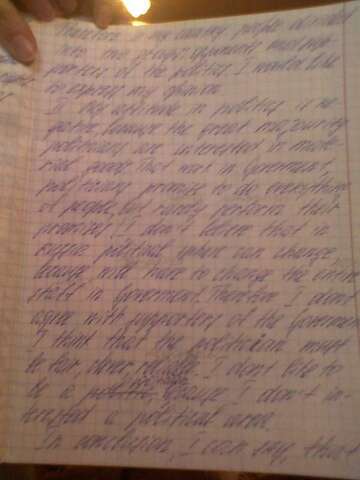 Therefore in my country people divided
into two groups: opponents and sup-
porters of the politics. I would like
to express my opinion.
My attitude in politics is ne-
gative, because the great majority
politicians are interested in mate-
rial goods. That were in Goverment,
politicians promise to do everything
of people, but rarely perform their
promises. I don't believe that in
russia political sphere can change,
because will have to change the entire
staff in Goverment. Therefore I don't
agree with supporters of the Goverment
I think that the politician must
be fair, clever, I don't like to
be a because I don't in-
terested a political area.
In conclusion, I can say, that